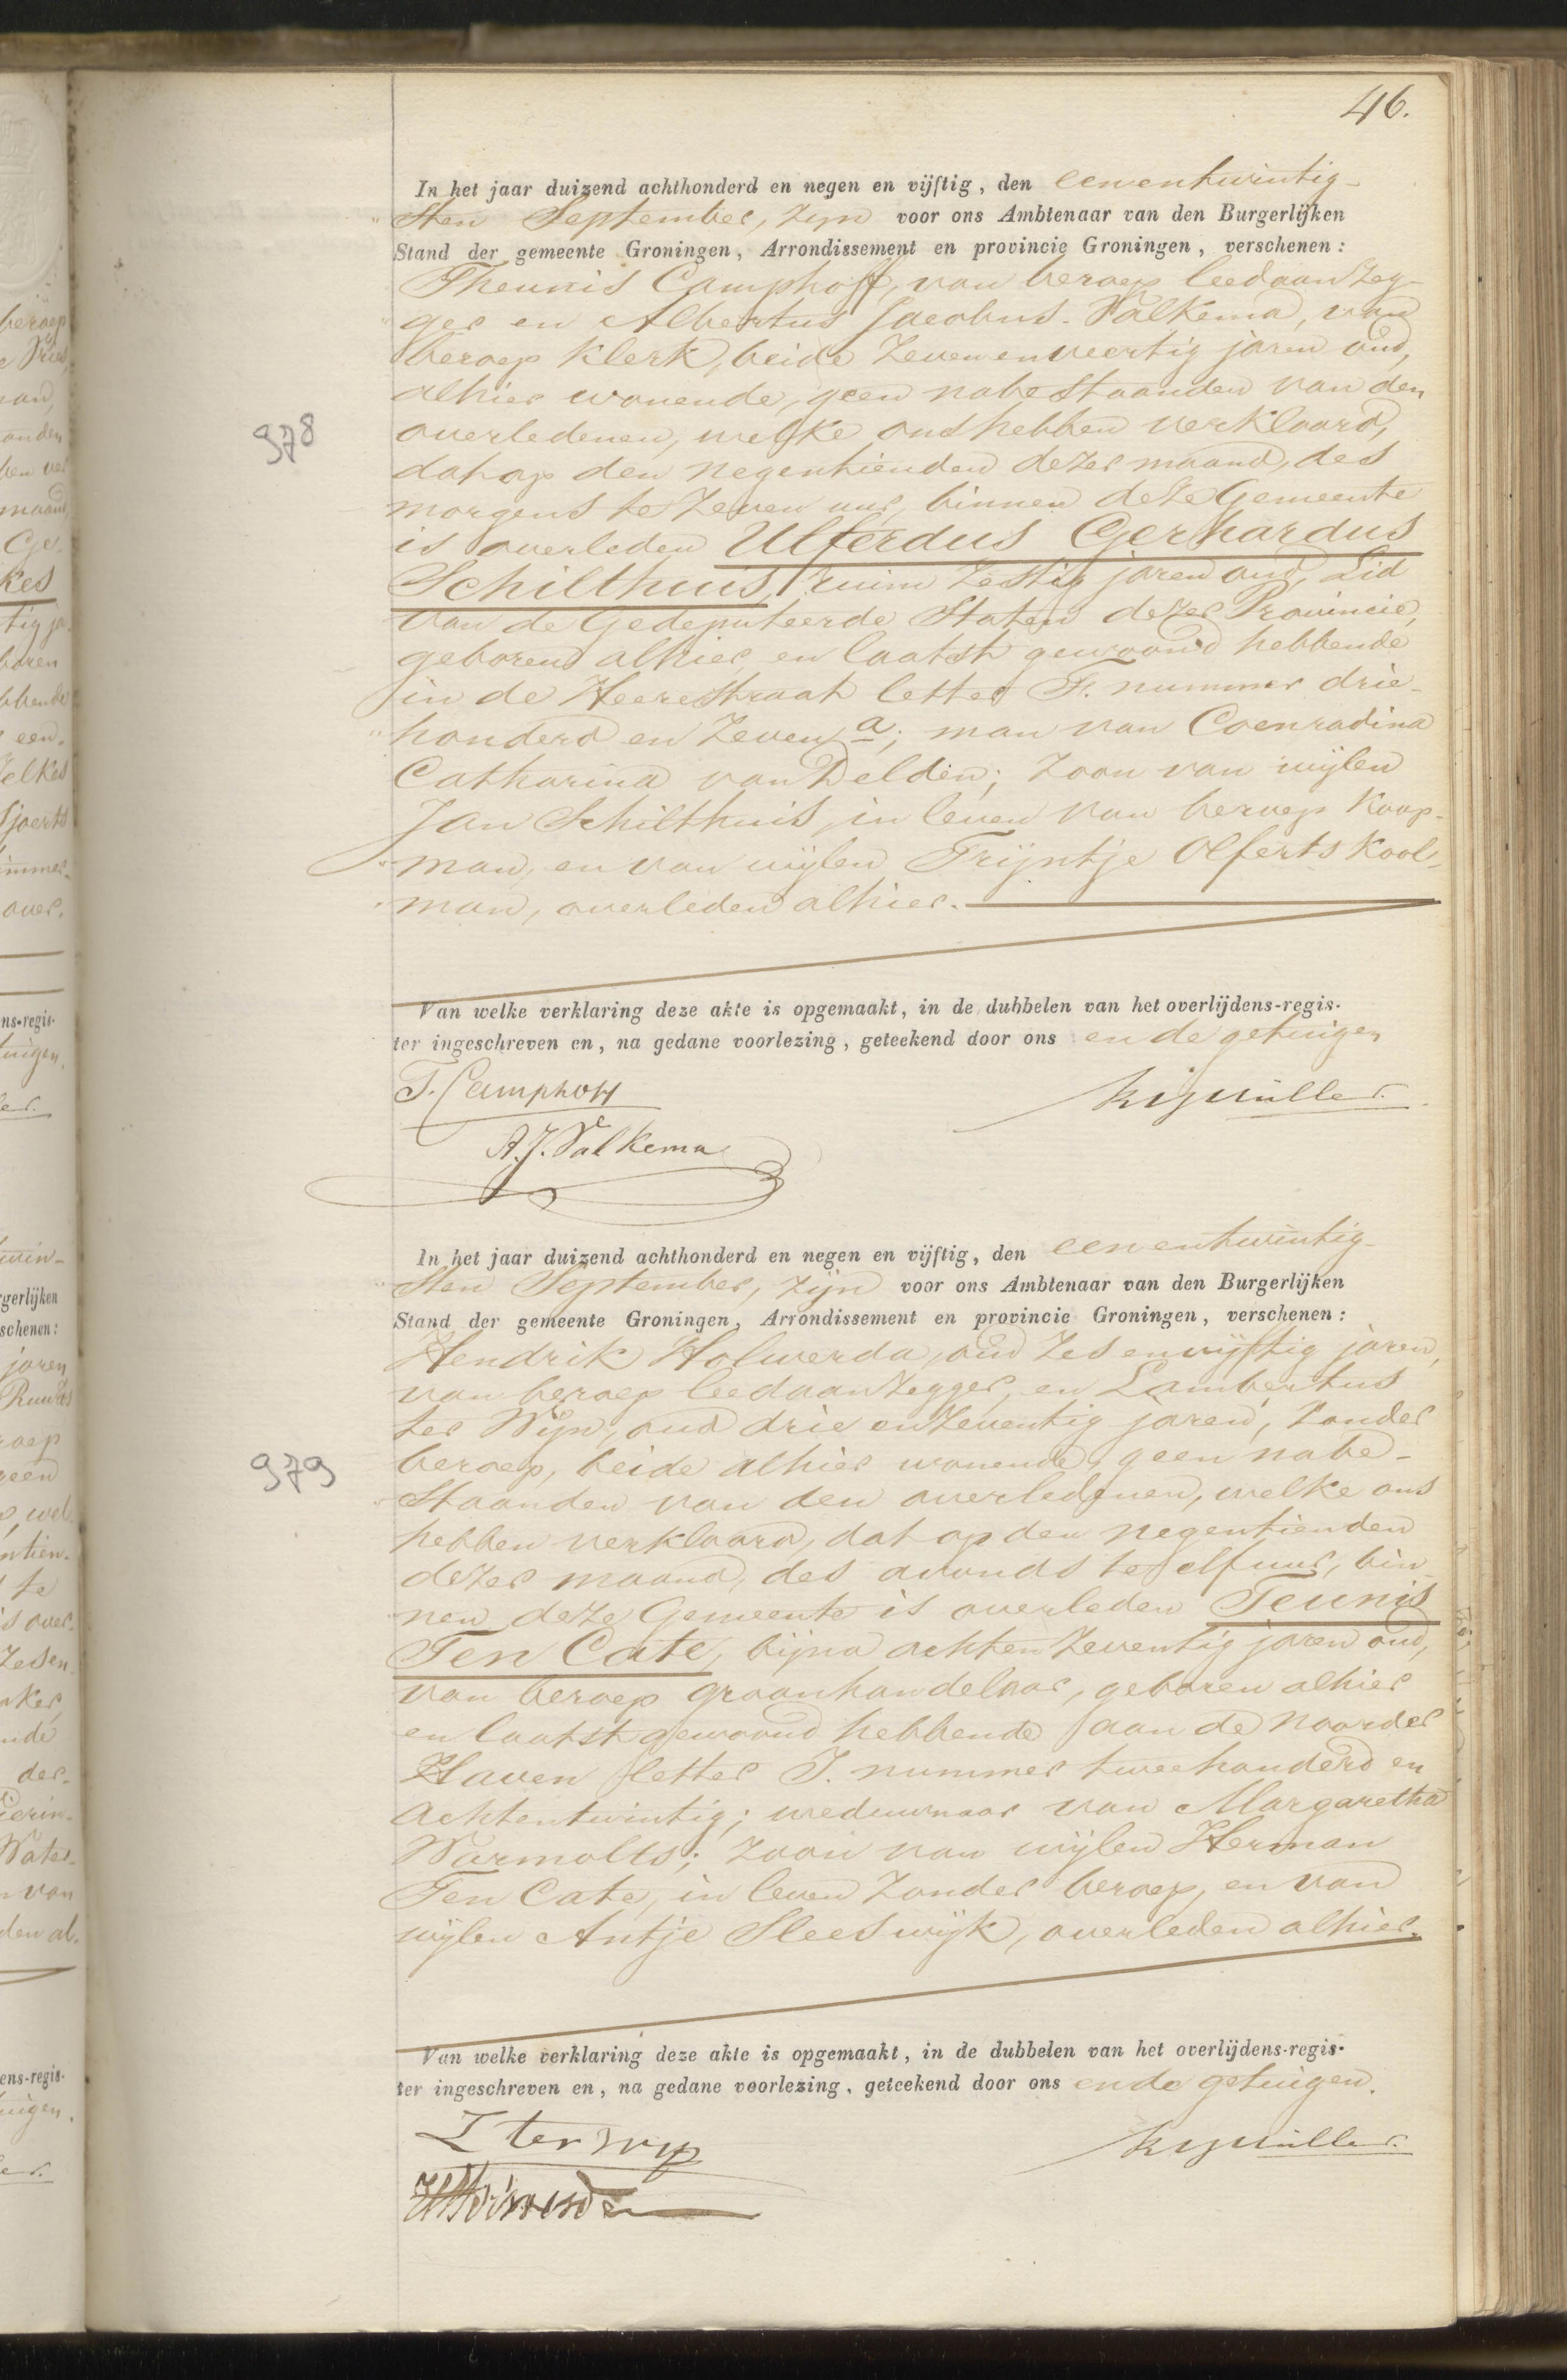 46.
In het jaar duizend achthonderd en negen en vijftig, den eenentwintig-
sten September, zijn voor ons Ambtenaar van den Burgerlijken
Stand der gemeente Groningen, Arrondissement en provincie Groningen, verschenen:
Theunis Camphoff, van beroep leedaanzeg-
ger en Albertus Jacobus Valkema, van
beroep klerk, beide zevenenveertig jaren oud,
alhier wonende, geen nabestaanden van den
978
overledenen, welke ons hebben verklaard,
dat op den negentienden dezer maand, des
morgens te zeven uur, binnen deze Gemeente
is overleden Ulferdus Gerhardus
Schilthuis, ruim zestig jaren oud, Lid
van de Gedeputeerde Staten dezer Provincie,
geboren alhier en laatst gewoond hebbende
in de Heerestraat letter F. nummer drie-
honderd en zeven a; man van Coenradina
Catharina van Delden; zoon van wijlen
Jan Schilthuis, in leven van beroep Koop-
man, en van wijlen Trijntje Olferts Kool-
man, overleden alhier.
Van welke verklaring deze akte is opgemaakt, in de dubbelen van het overlijdens-regis-
ter ingeschreven en, na gedane voorlezing, geteekend door ons en de getuigen
T. Camphoff
A. J. Valkema
In het jaar duizend achthonderd en negen en vijftig, den eenentwintig-
sten September, zijn voor ons Ambtenaar van den Burgerlijken
Stand der gemeente Groningen, Arrondissement en provincie Groningen, verschenen:
Hendrik Holwerda, oud zesenvijftig jaren,
van beroep leedaanzegger, en Lambertus
ter Wijp, oud drie en zeventig jaren, zonder
beroep, beide alhier wonende, geen nabe-
979
staanden van den overledenen, welke ons
hebben verklaard, dat op den negentienden
dezer maand, des avonds te elf uur, bin-
nen deze Gemeente is overleden Teunis
Ten Cate, bijna achtenzeventig jaren oud,
van beroep graanhandelaar, geboren alhier
en laatst gewoond hebbende aan de noorder
Haven letter J. nummer tweehonderd en
achtentwintig; weduwnaar van Margaretha
Warmolts; zoon van wijlen Herman
Ten Cate, in leven zonder beroep, en van
wijlen Antje Sleeswijk, overleden alhier.
Van welke verklaring deze akte is opgemaakt, in de dubbelen van het overlijdens-regis-
ter ingeschreven en, na gedane voorlezing, geteekend door ons en de getuigen.
L ter Wijp